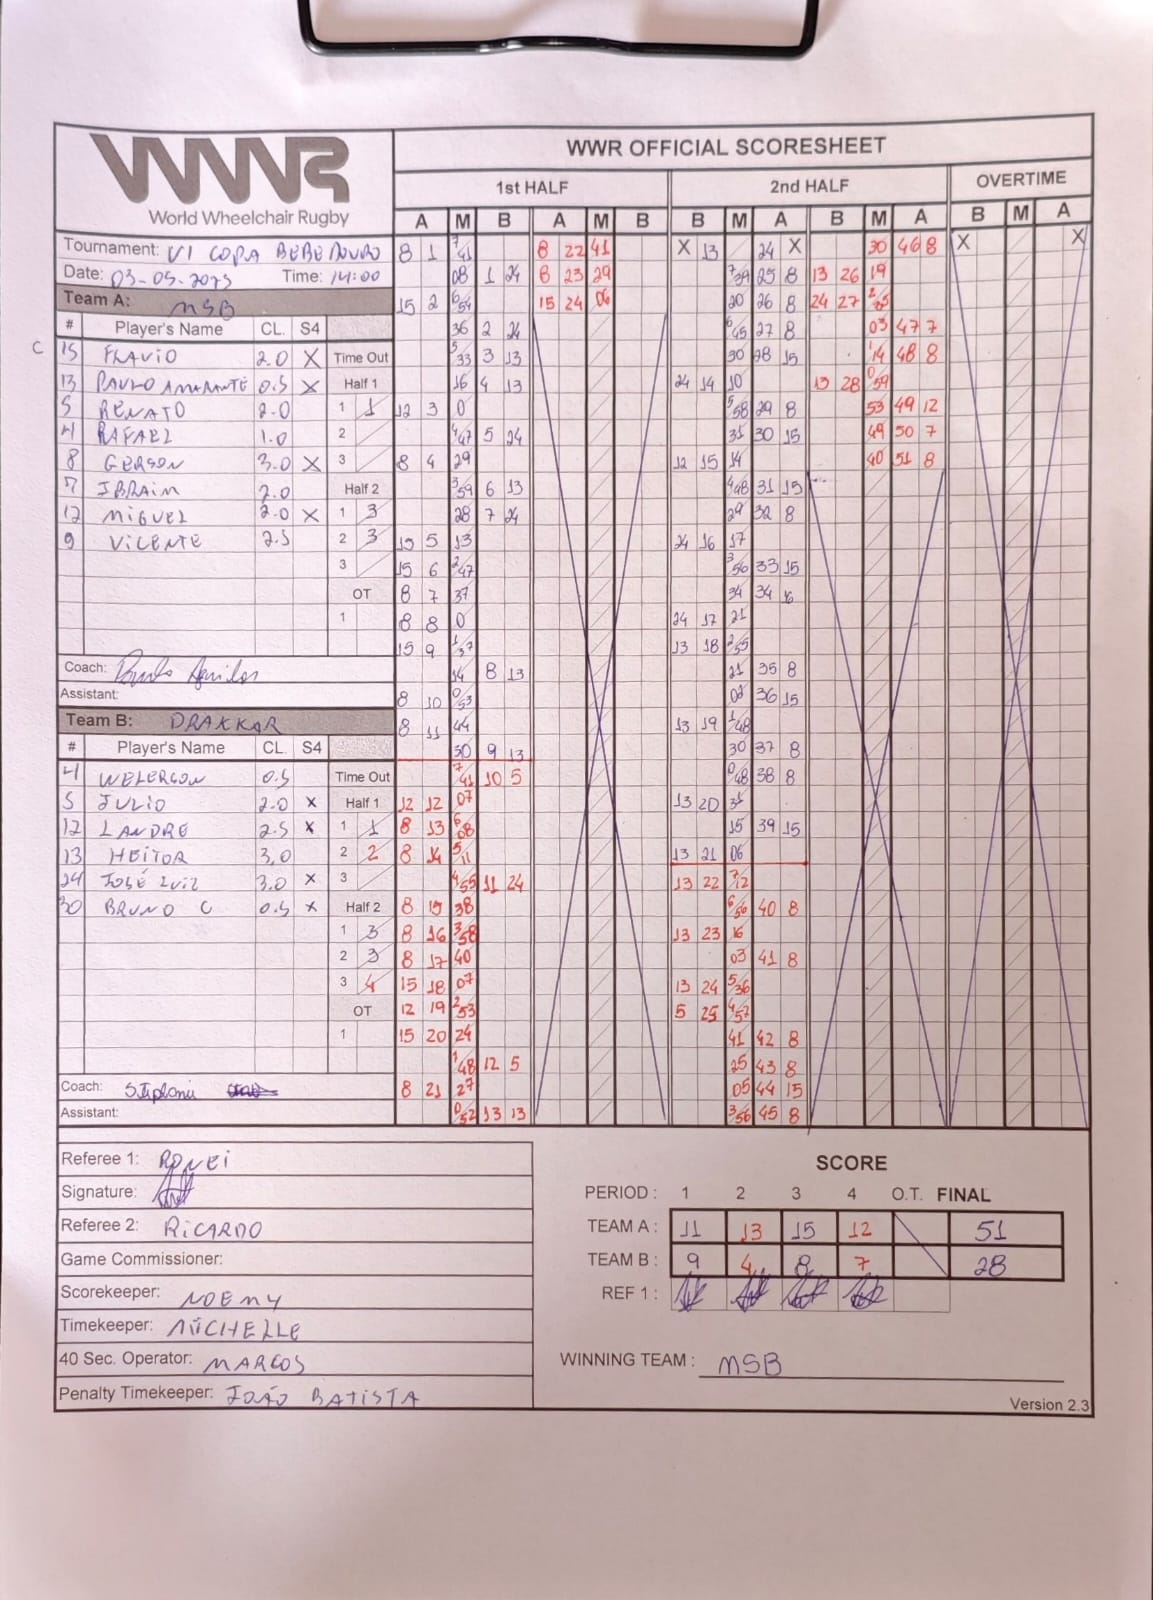 WWR
World Wheelchair Rugby
WWR OFFICIAL SCORESHEET
1st HALF 2nd HALF OVERTIME
A M B A M B B M A B M A B M A
Tournament: VI COPA BEBEDOURO
Date: 03-05-2025 Time: 14:00
Team A: MSB
# Player's Name CL. S4
C 15 FLAVIO 2.0 X Time Out
13 PAULO AMARANTE 0.5 X Half 1
5 RENATO 2.0 1 1
4 RAFAEL 1.0 2
8 GERSON 3.0 X 3
7 IBRAIM 2.0 Half 2
12 MIGUEL 2.0 X 1 3
9 VICENTE 2.5 2 3
3
OT
1
Coach:
Assistant:
Team B: DRAKKAR
# Player's Name CL. S4
4 WELERSON 0.5 Time Out
5 JULIO 2.0 X Half 1
12 LANDRE 2.5 X 1 1
13 HEITOR 3,0 2 2
24 JOSÉ LUIZ 3.0 X 3
30 BRUNO C 0.5 X Half 2
1 3
2 3
3 4
OT
1
Coach:
Assistant:
8 1 7/41
08 1 24
15 2 6/54
36 2 24
5/33 3 13
16 4 13
12 3 0
4/47 5 24
8 4 29
3/59 6 13
28 7 24
15 5 13
15 6 2/47
8 7 37
8 8 0
15 9 1/37
14 8 13
8 10 0/53
8 11 44
30 9 13
7/41 10 5
12 12 07
8 13 6/08
8 14 5/11
4/55 11 24
8 15 38
8 16 3/58
8 17 40
15 18 07
12 19 2/53
15 20 24
1/48 12 5
8 21 27
0/52 13 13
8 22 41
8 23 29
15 24 06
X 13 24 X
7/39 25 8
20 26 8
6/45 27 8
30 28 15
24 14 10
5/58 29 8
31 30 15
12 15 14
4/48 31 15
29 32 8
24 16 17
3/56 33 15
34 34
24 17 21
13 18 2/55
21 35 8
02 36 15
13 19 1/48
30 37 8
0/48 38 8
13 20 31
15 39 15
13 21 06
13 22 7/12
6/56 40 8
13 23 16
03 41 8
13 24 5/36
5 25 4/57
41 42 8
25 43 8
05 44 15
3/56 45 8
30 46 8
13 26 19
24 27
03 47 7
1/14 48 8
13 28 0/59
53 49 12
49 50 7
40 51 8
X X
Referee 1: RONEI
Signature:
Referee 2: RICARDO
Game Commissioner:
Scorekeeper: NOEMY
Timekeeper: MICHELLE
40 Sec. Operator: MARCOS
Penalty Timekeeper: JOÃO BATISTA
SCORE
PERIOD : 1 2 3 4 O.T. FINAL
TEAM A : 11 13 15 12 51
TEAM B : 9 4 8 7 28
REF 1 :
WINNING TEAM : MSB
Version 2.3